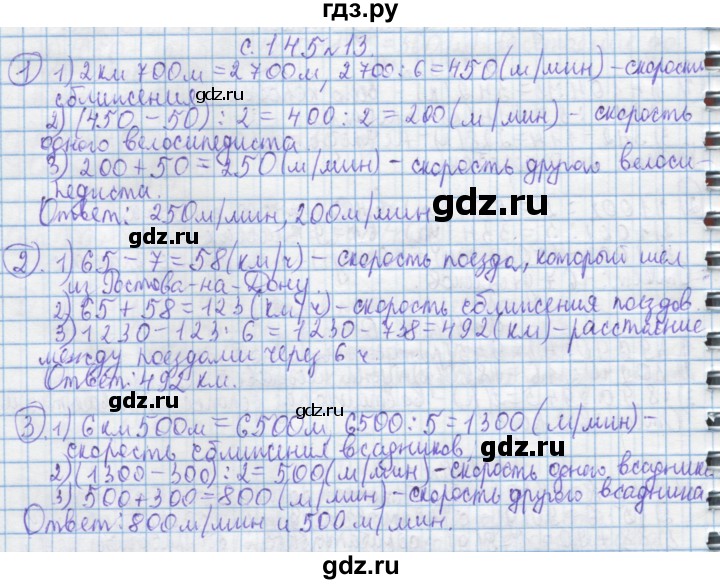 гдз.ру
с. 145 № 13
① 1) 2 км 700 м = 2700 м, 2700 : 6 = 450 (м/мин) – скорость
сближения
2) (450 – 50) : 2 = 400 : 2 = 200 (м/мин) – скорость
одного велосипедиста.
3) 200 + 50 = 250 (м/мин) – скорость другого велоси-
педиста.
Ответ: 250 м/мин, 200 м/мин
② 1) 65 – 7 = 58 (км/ч) – скорость поезда, который шёл
из Ростова-на-Дону.
2) 65 + 58 = 123 (км/ч) – скорость сближения поездов.
3) 1230 – 123 · 6 = 1230 – 738 = 492 (км) – расстояние
между поездами через 6 ч.
Ответ: 492 км.
③ 1) 6 км 500 м = 6500 м 6500 : 5 = 1300 (м/мин) –
скорость сближения всадников
2) (1300 – 300) : 2 = 500 (м/мин) – скорость одного всадника
3) 500 + 300 = 800 (м/мин) – скорость другого всадника
Ответ: 800 м/мин и 500 м/мин.
gdz.ru
gdz.ru
gdz.ru
gdz.ru
gdz.ru
gdz.ru
gdz.ru
gdz.ru